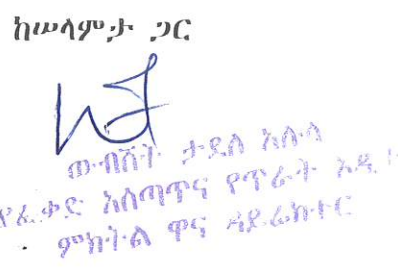 ከሠላምታ ጋር
ውብሸት ታደለ አሉላ
የፈቃድ አሰጣጥና የጥራት ኦዲ
ምክትል ዋና ዳይሬክተር